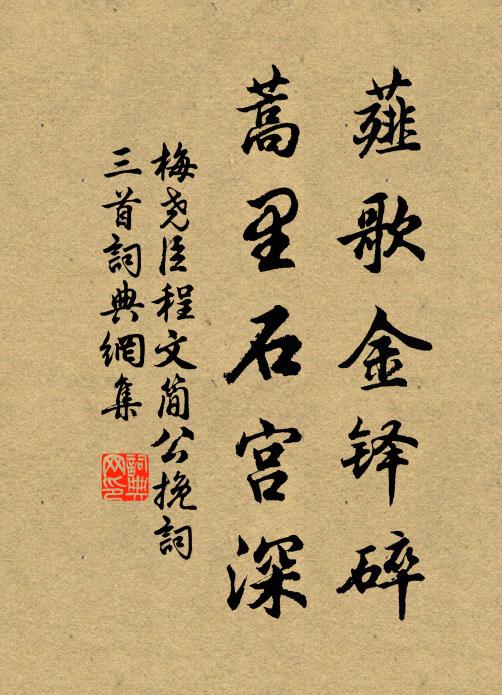 薤歌金铎碎
蒿里石宫深
梅尧臣程文简公挽詞
三首詞典網集
詞典
网印